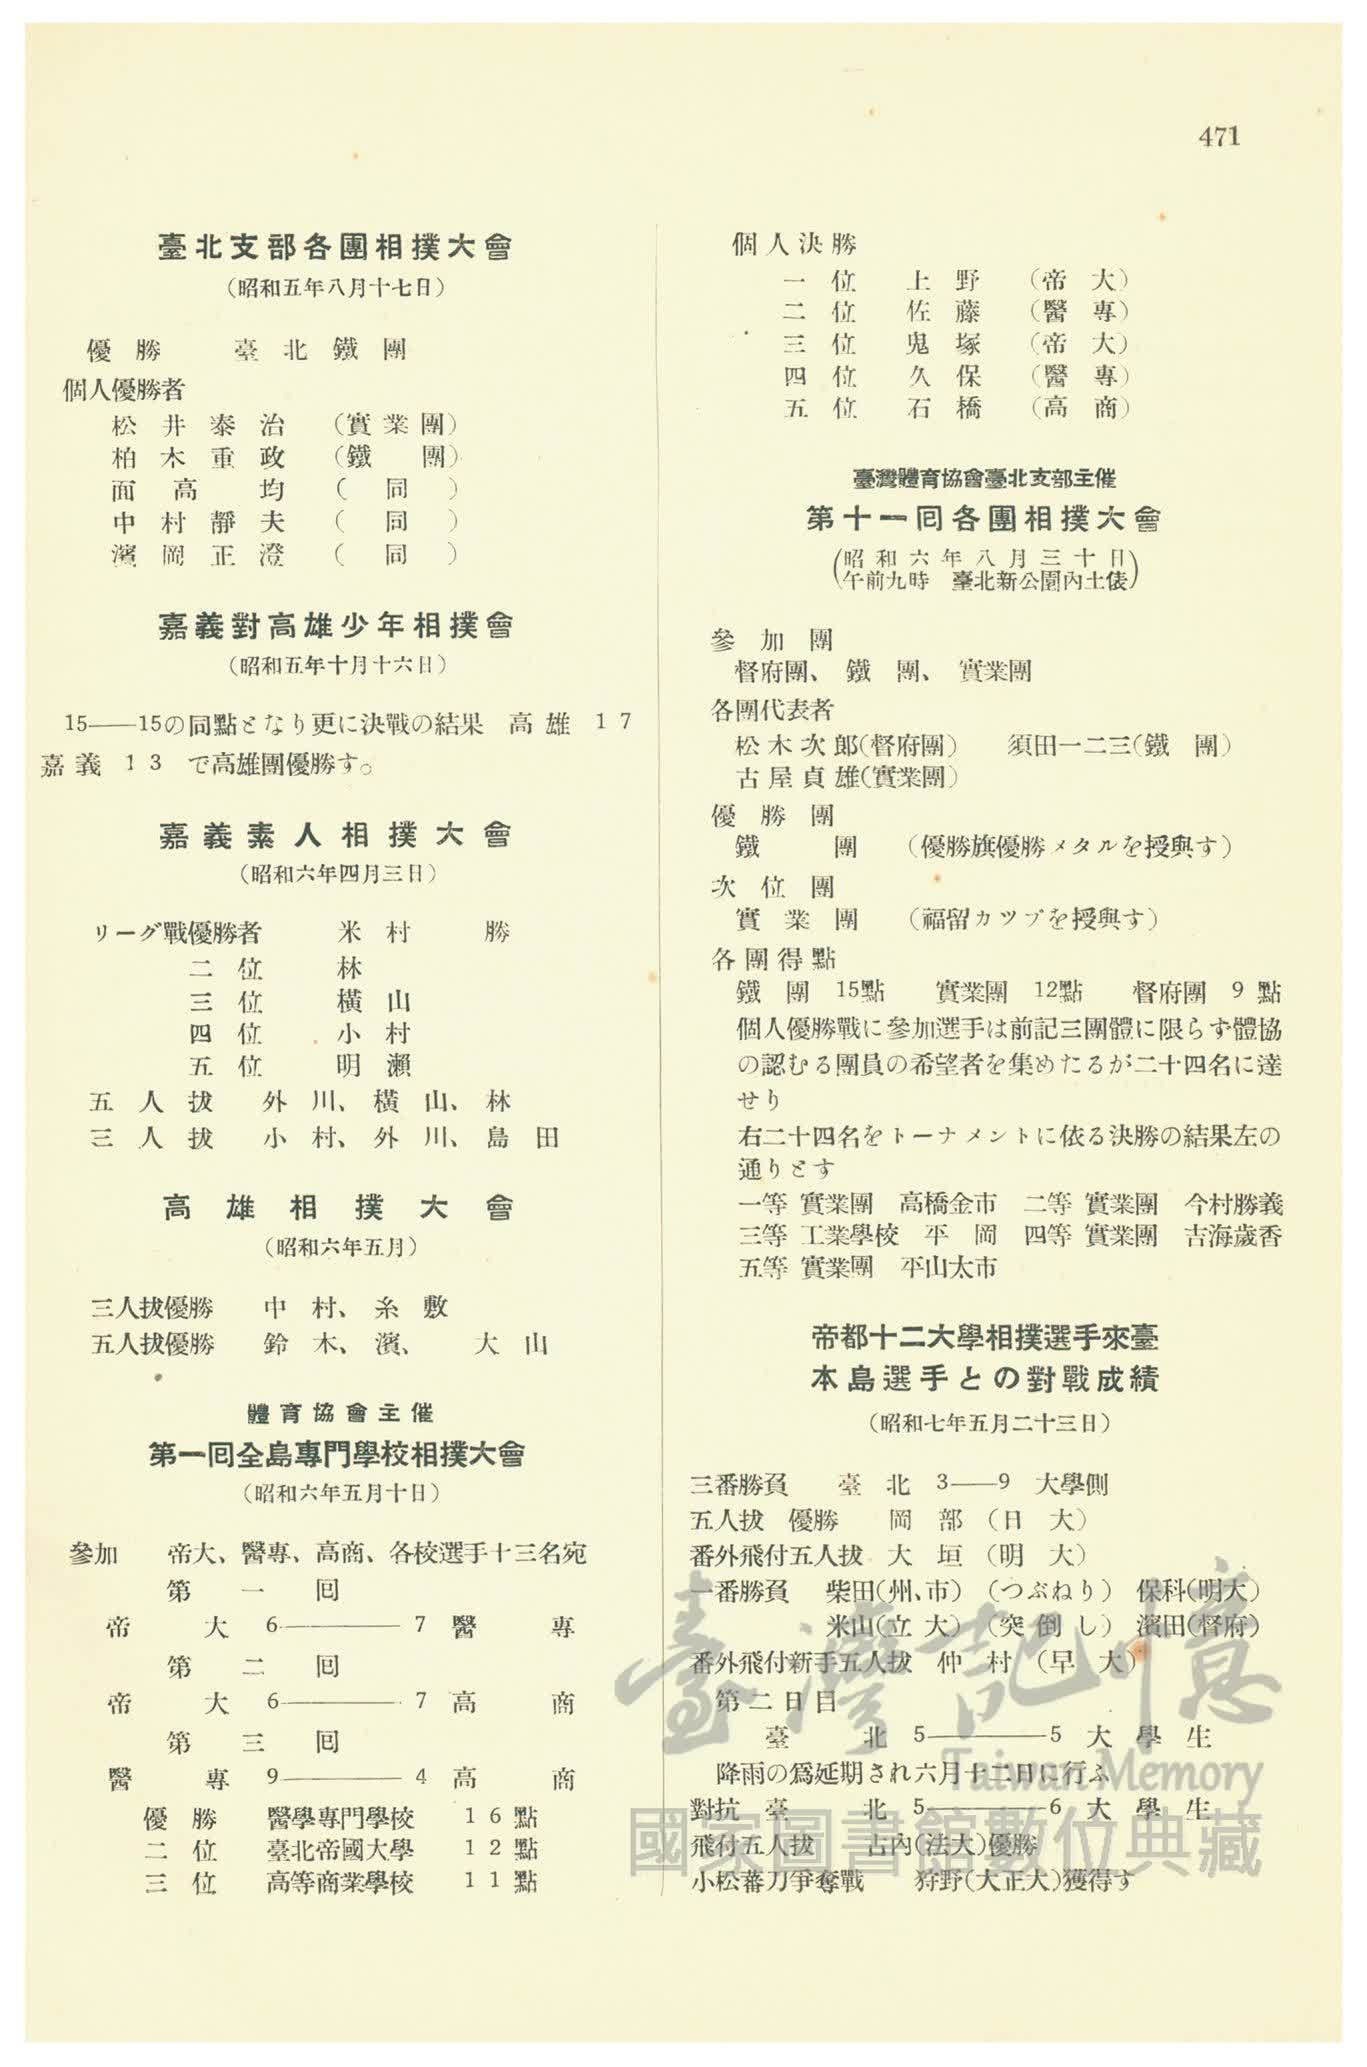 471
臺北支部各團相撲大會
（昭和五年八月十七日）
優勝　臺北鐵團
個人優勝者
松井泰治（實業團）
柏木重政（鐵　團）
面高　均（　同　）
中村靜夫（　同　）
濱岡正澄（　同　）
嘉義對高雄少年相撲會
（昭和五年十月十六日）
15――15の同點となり更に決戰の結果　高雄　17
嘉義　13　で高雄團優勝す。
嘉義素人相撲大會
（昭和六年四月三日）
リーグ戰優勝者　米村　勝
二位　林
三位　橫山
四位　小村
五位　明瀨
五人拔　外川、橫山、林
三人拔　小村、外川、島田
高雄相撲大會
（昭和六年五月）
三人拔優勝　中村、糸敷
五人拔優勝　鈴木、濱、大山
體育協會主催
第一囘全島專門學校相撲大會
（昭和六年五月十日）
參加　帝大、醫專、高商、各校選手十三名宛
第一囘
帝大　6――――7　醫專
第二囘
帝大　6――――7　高商
第三囘
醫專　9――――4　高商
優勝　醫學專門學校　16點
二位　臺北帝國大學　12點
三位　高等商業學校　11點
個人決勝
一位　上野　（帝大）
二位　佐藤　（醫專）
三位　鬼塚　（帝大）
四位　久保　（醫專）
五位　石橋　（高商）
臺灣體育協會臺北支部主催
第十一囘各團相撲大會
（昭和六年八月三十日
午前九時　臺北新公園內土俵）
參加團
督府團、鐵團、實業團
各團代表者
松木次郎（督府團）　須田一二三（鐵　團）
古屋貞雄（實業團）
優勝團
鐵團　（優勝旗優勝メタルを授與す）
次位團
實業團　（福留カツプを授與す）
各團得點
鐵團　15點　實業團　12點　督府團　9點
個人優勝戰に參加選手は前記三團體に限らず體協
の認むる團員の希望者を集めたるが二十四名に達
せり
右二十四名をトーナメントに依る決勝の結果左の
通りとす
一等　實業團　高橋金市　二等　實業團　今村勝義
三等　工業學校　平岡　四等　實業團　吉海歲香
五等　實業團　平山太市
帝都十二大學相撲選手來臺
本島選手との對戰成績
（昭和七年五月二十三日）
三番勝負　臺北　3――9　大學側
五人拔　優勝　岡部（日大）
番外飛付五人拔　大垣（明大）
一番勝負　柴田（州、市）（つぶねり）保科（明大）
米山（立大）（突倒し）濱田（督府）
番外飛付新手五人拔　仲村（早大）
第二日目
臺北　5――――5　大學生
降雨の爲延期され六月十二日に行ふ
對抗　臺北　5――――6　大學生
飛付五人拔　古內（法大）優勝
小松蕃刀爭奪戰　狩野（大正大）獲得す
臺灣記憶
Taiwan Memory
國家圖書館數位典藏